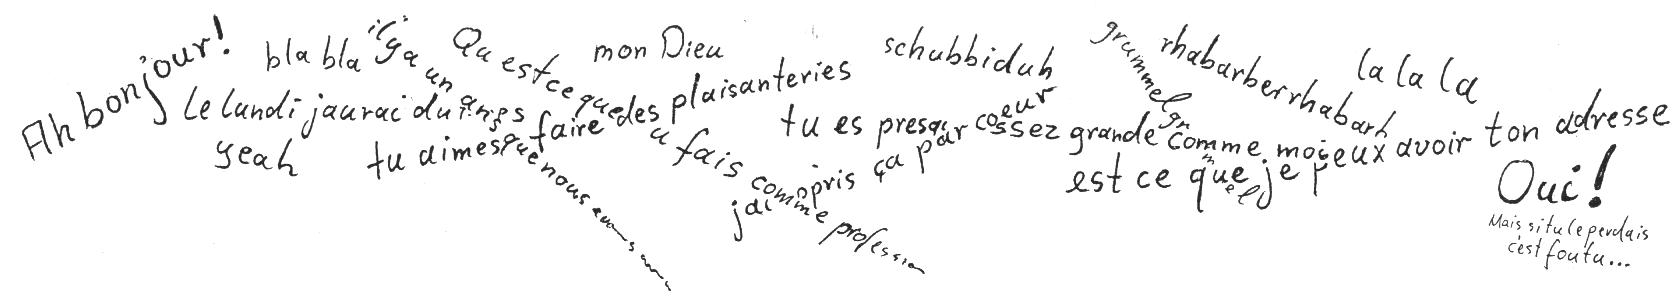 Ah bonjour!
bla bla
il y a un an que nous
Le lundi jaurai du
yeah
Qu est ce que tu fais comme profession
mon Dieu
tu aimes faire des plaisanteries
schubbiduh
jai appris ça par coeur
tu es presque assez grande comme moi
grummelgrummel
rhabarberrhabarb
la la la
est ce que je peux avoir ton adresse
Oui!
Mais si tu le perdais
c'est foutu...